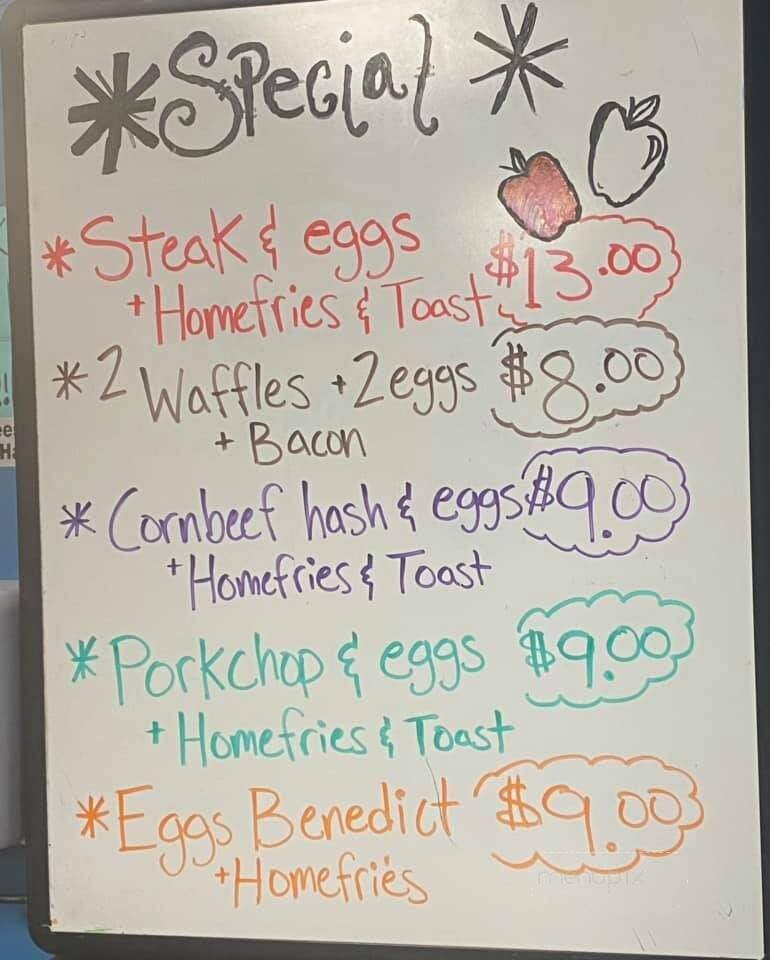 *Special*
*Steak & eggs $13.00
+Homefries & Toast
*2 Waffles +2eggs $8.00
+ Bacon
*Cornbeef hash & eggs $9.00
+Homefries & Toast
*Porkchop & eggs $9.00
+ Homefries & Toast
*Eggs Benedict $9.00
+Homefries
menupix